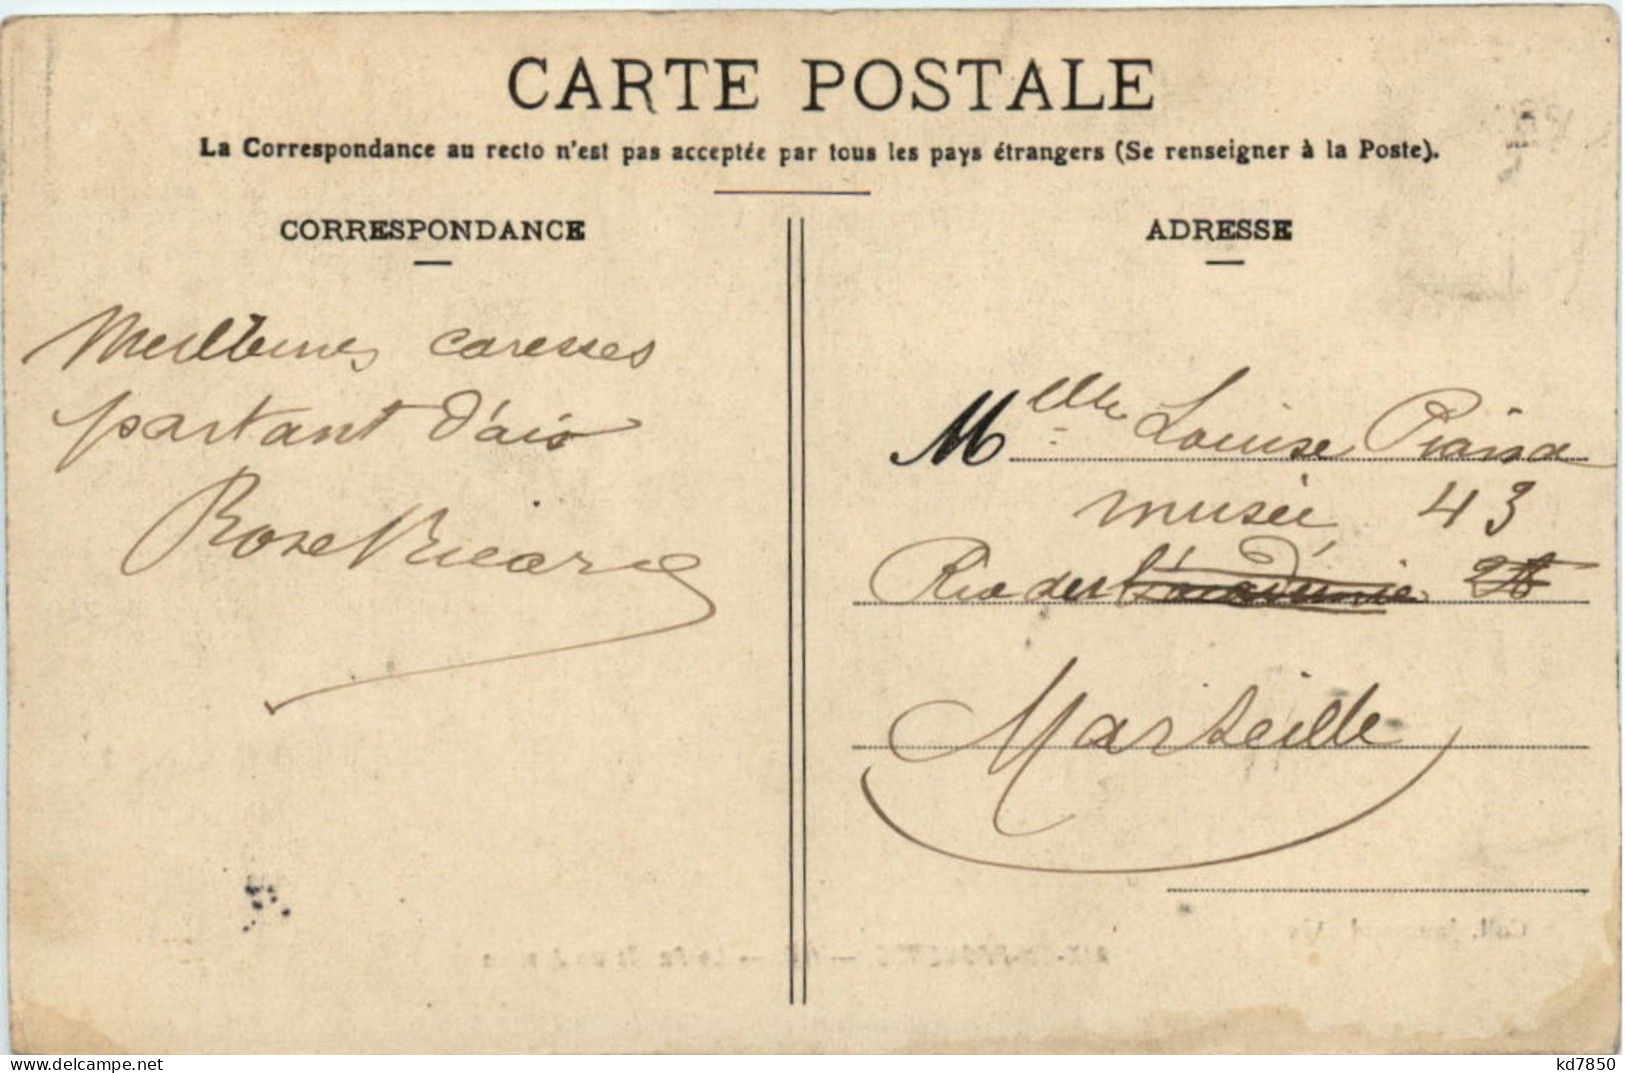 CARTE POSTALE
La Correspondance au recto n'est pas acceptée par tous les pays étrangers (Se renseigner à la Poste).
CORRESPONDANCE
ADRESSE
Meilleures caresses
partant d'aix
Rose Ricard
Melle Louise
musée 43
Rue des
Marseille
AIX-EN-PROVENCE
www.delcampe.net
kd7850